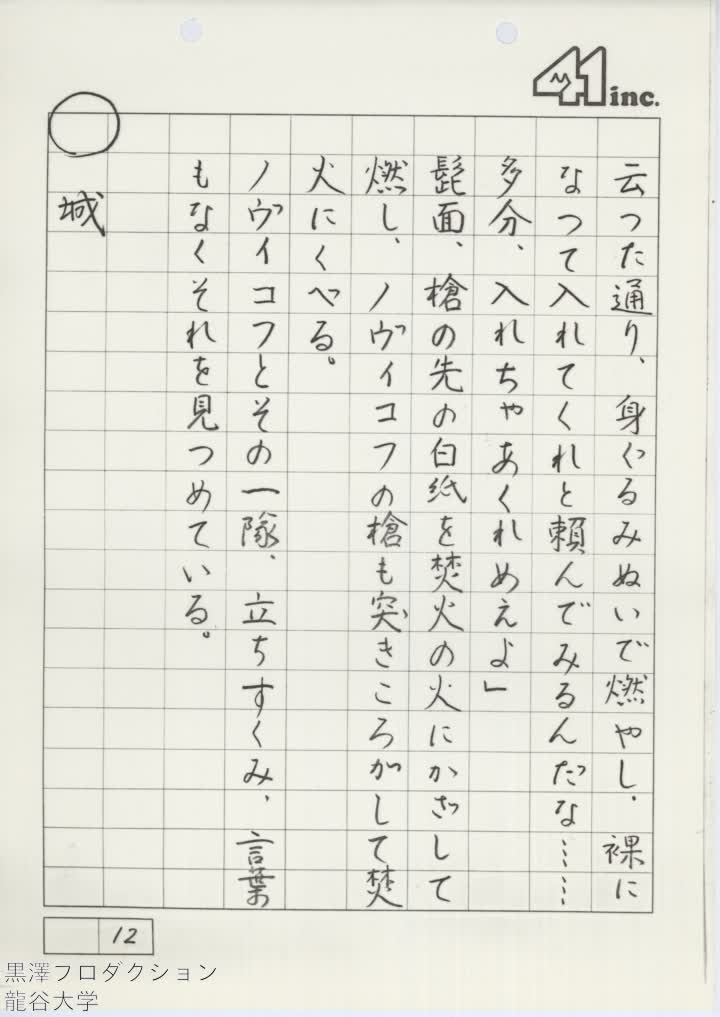 41 inc.
云つた通り、身ぐるみぬいで燃やし、裸に
なつて入れてくれと頼んでみるんだな……
多分、入れちやあくれめえよ」
髭面、槍の先の白紙を焚火の火にかざして
燃し、ノヴィコフの槍も突きころがして焚
火にくべる。
ノヴイコフとその一隊、立ちすくみ、言葉
もなくそれを見つめている。
○ 城
12
黒澤プロダクション
龍谷大学